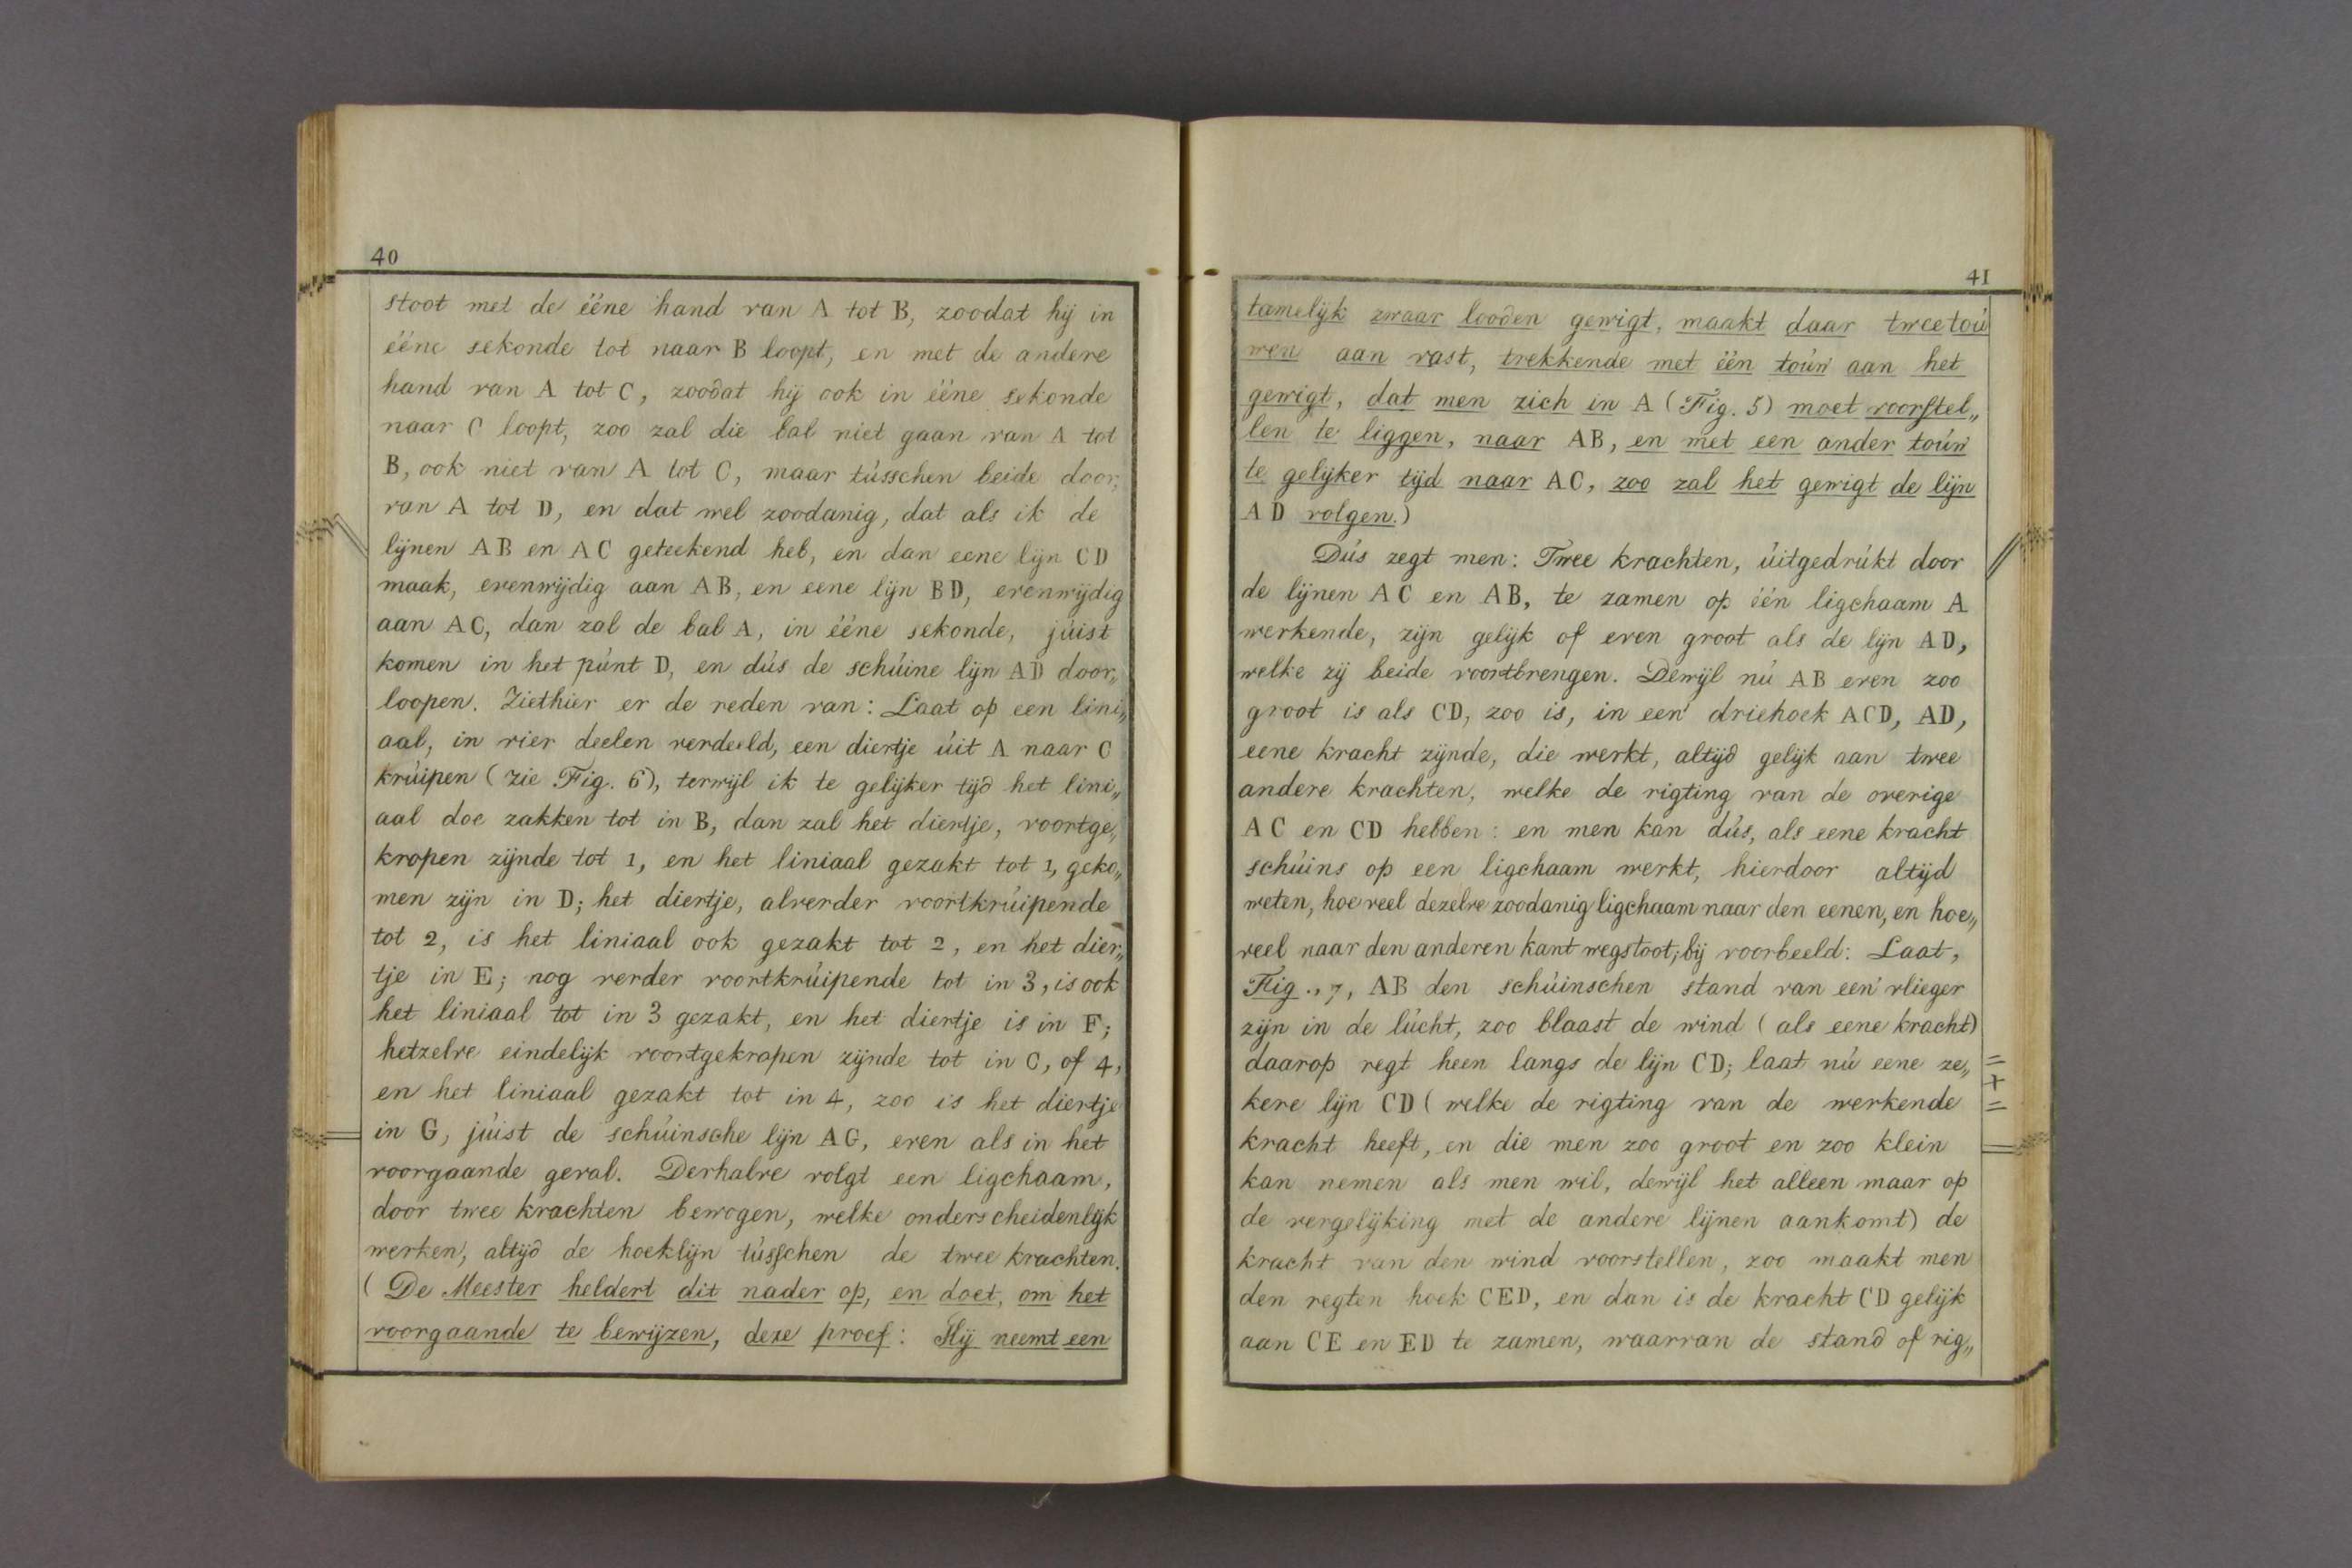 40
stoot met de ééne hand van A tot B, zoodat hij in
ééne sekonde tot naar B loopt, en met de andere
hand van A tot C, zoodat hij ook in ééne sekonde
naar C loopt, zoo zal die bal niet gaan van A tot
B, ook niet van A tot C, maar tússchen beide door,
van A tot D, en dat wel zoodanig, dat als ik de
lijnen AB en AC geteekend heb, en dan eene lijn CD
maak, evenwijdig aan AB, en eene lijn BD, evenwijdig
aan AC, dan zal de bal A, in ééne sekonde, júist
komen in het púnt D, en dús de schúine lijn AD door„
loopen. Ziethier er de reden van: Laat op een lini„
aal, in vier deelen verdeeld, een diertje úit A naar C
krúipen (zie Fig. 6), terwijl ik te gelijker tijd het lini„
aal doe zakken tot in B, dan zal het diertje, voortge„
kropen zijnde tot 1, en het liniaal gezakt tot 1, geko„
men zijn in D; het diertje, alverder voortkrúipende
tot 2, is het liniaal ook gezakt tot 2, en het dier„
tje in E; nog verder voortkrúipende tot in 3, is ook
het liniaal tot in 3 gezakt, en het diertje is in F;
hetzelve eindelijk voortgekropen zijnde tot in C, of 4,
en het liniaal gezakt tot in 4, zoo is het diertje
in G, júist de schúinsche lijn AG, even als in het
voorgaande geval. Derhalve volgt een ligchaam,
door twee krachten bewogen, welke onderscheidenlijk
werken, altijd de hoeklijn tússchen de twee krachten.
(De Meester heldert dit nader op, en doet, om het
voorgaande te bewijzen, deze proef: Hij neemt een
41
tamelijk zwaar looden gewigt, maakt daar twee toú
wen aan vast, trekkende met één toúw aan het
gewigt, dat men zich in A (Fig. 5) moet voorstel„
len te liggen, naar AB, en met een ander toúw
te gelijker tijd naar AC, zoo zal het gewigt de lijn
AD volgen.)
Dús zegt men: Twee krachten, úitgedrúkt door
de lijnen AC en AB, te zamen op één ligchaam A
werkende, zijn gelijk of even groot als de lijn AD,
welke zij beide voortbrengen. Dewijl nú AB even zoo
groot is als CD, zoo is, in een' driehoek ACD, AD,
eene kracht zijnde, die werkt, altijd gelijk aan twee
andere krachten, welke de rigting van de overige
AC en CD hebben: en men kan dús, als eene kracht
schúins op een ligchaam werkt, hierdoor altijd
weten, hoe veel dezelve zoodanig ligchaam naar den eenen, en hoe„
veel naar den anderen kant wegstoot; bij voorbeeld: Laat,
Fig., 7, AB den schúinschen stand van een' vlieger
zijn in de lúcht, zoo blaast de wind (als eene kracht)
daarop regt heen langs de lijn CD; laat nú eene ze„
kere lijn CD (welke de rigting van de werkende
kracht heeft, en die men zoo groot en zoo klein
kan nemen als men wil, dewijl het alleen maar op
de vergelijking met de andere lijnen aankomt) de
kracht van den wind voorstellen, zoo maakt men
den regten hoek CED, en dan is de kracht CD gelijk
aan CE en ED te zamen, waarvan de stand of rig„